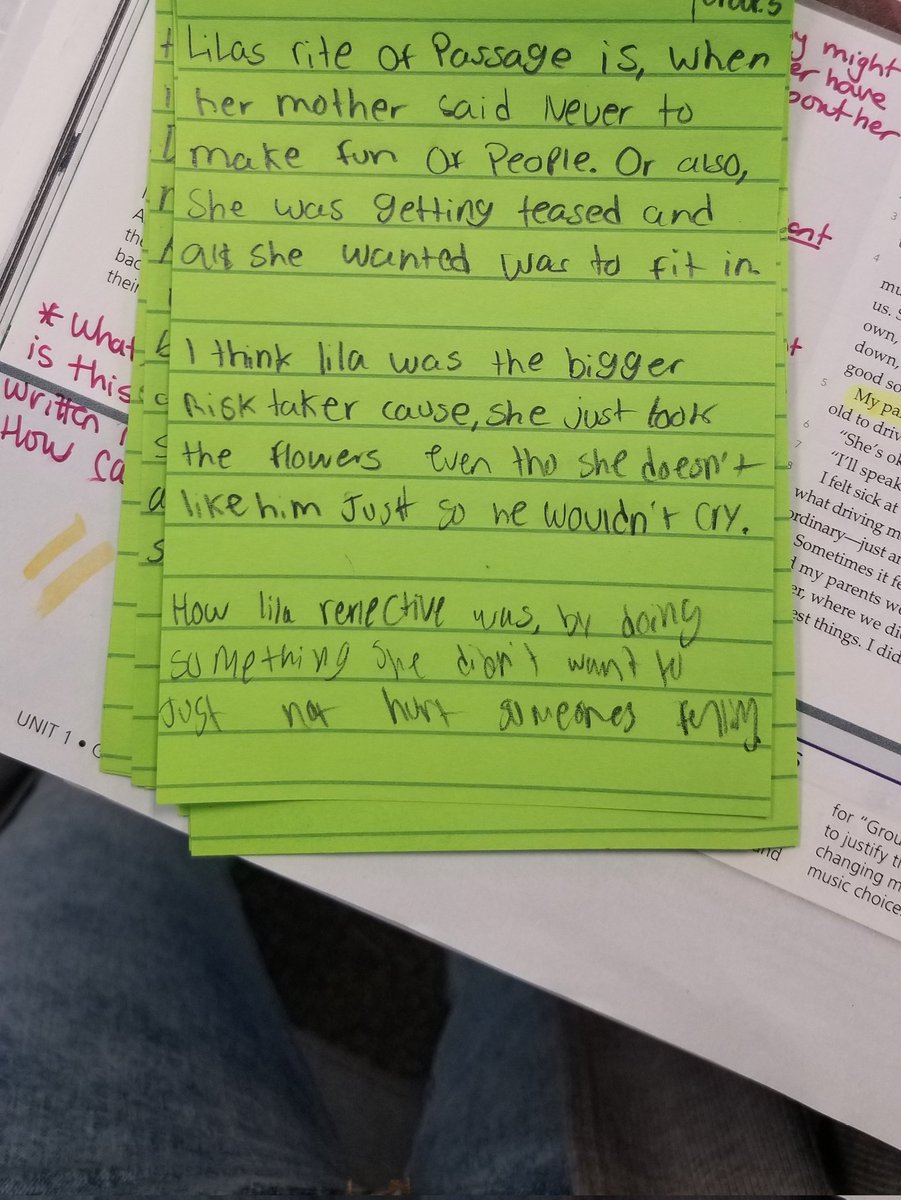 Lilas rite of Passage is, when
her mother said Never to
make fun of People. Or also,
She was getting teased and
all she wanted was to fit in.
I think lila was the bigger
Risk taker cause, she just took
the flowers even tho she doesn't
like him Just so he wouldn't cry.
How lila reflective was, by doing
something she didn't want to
Just not hurt someones
* What
is this
written
How
y might
er have
bout her
ent
UNIT 1 •
the
bac
their
mu
us. S
own,
down,
good so
5
My pa
old to driv
6
"She's ok
7
"I'll speak
I felt sick at
what driving m
ordinary—just an
Sometimes it fe
my parents we
er, where we di
est things. I did
for "Grou
to justify t
changing m
music choice